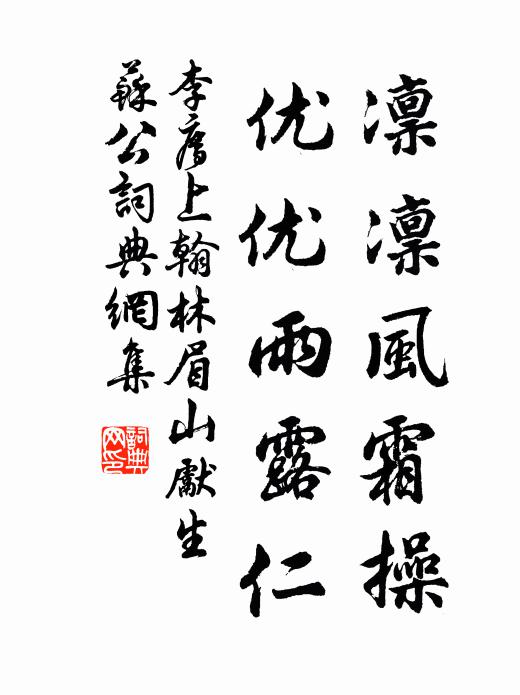 凛凛風霜操
优优雨露仁
李廌上翰林眉山獻生
蘇公詞典網集
詞典網印